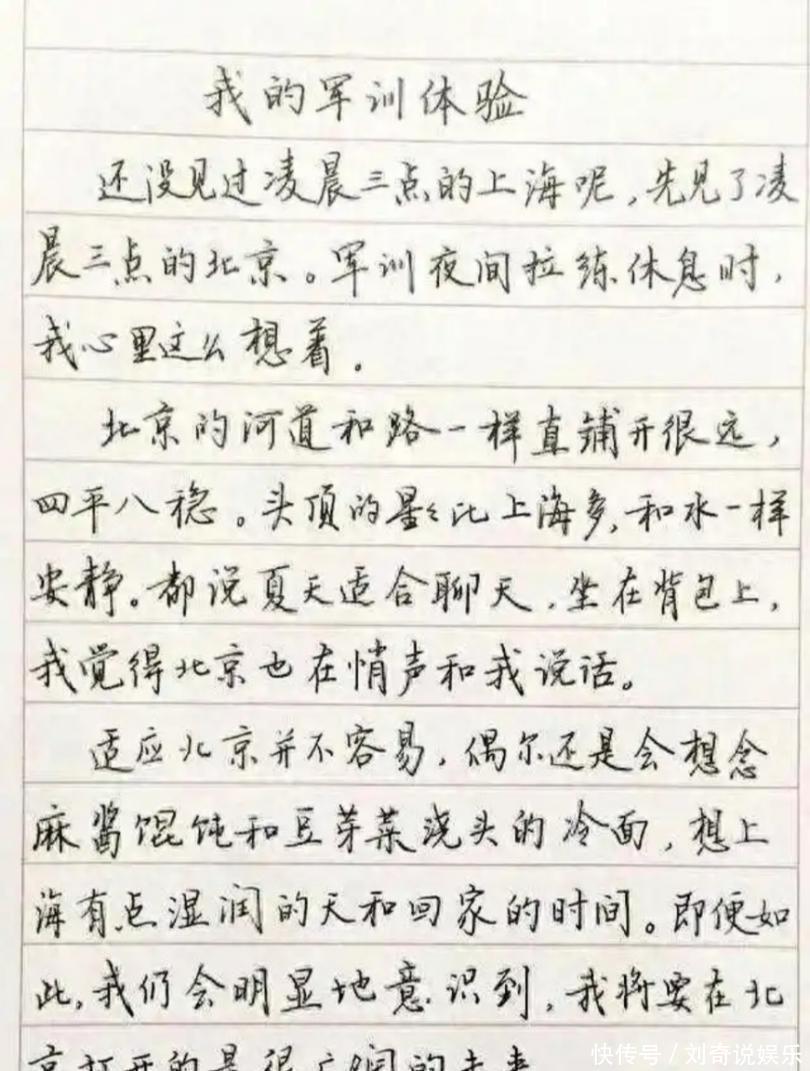 我的军训体验
还没见过凌晨三点的上海呢,先见了凌
晨三点的北京。军训夜间拉练休息时,
我心里这么想着。
北京的河道和路一样直铺开很远,
四平八稳。头顶的星々比上海多,和水一样
安静。都说夏天适合聊天,坐在背包上,
我觉得北京也在悄声和我说话。
适应北京并不容易,偶尔还是会想念
麻酱馄饨和豆芽菜浇头的冷面,想上
海有点湿润的天和回家的时间。即便如
此,我们会明显地意识到,我将要在北
京打开的是很广阔的未来
快传号/刘奇说娱乐